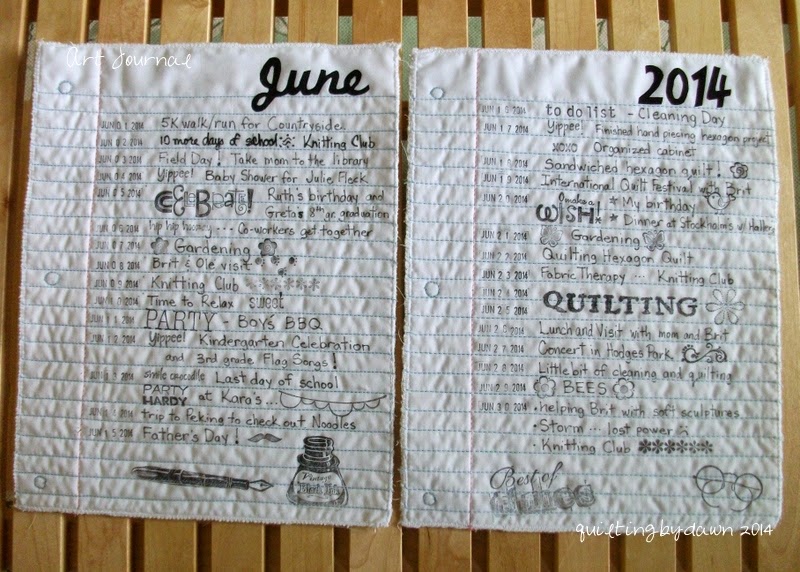 Art Journal
June
JUN 01 2014 5K walk/run for Countryside
JUN 02 2014 10 more days of school Knitting Club
JUN 03 2014 Field Day! Take mom to the library
JUN 04 2014 Yippee! Baby Shower for Julie Fleck
JUN 05 2014 CELEBRATE! Ruth's birthday and
Greta's 8th gr. graduation
JUN 06 2014 hip hip hooray ... Co-workers get together
JUN 07 2014 Gardening
JUN 08 2014 Brit & Ole visit
JUN 09 2014 Knitting Club
JUN 10 2014 Time to Relax sweet
JUN 11 2014 PARTY - Boys BBQ
JUN 12 2014 Yippee! Kindergarten Celebration
and 3rd grade Flag Songs!
JUN 13 2014 smile crocodile Last day of school
PARTY HARDY at Kara's ...
JUN 14 2014 trip to Peking to check out Noodles
JUN 15 2014 Father's Day!
Vintage
Black Ink
2014
JUN 16 2014 to do list - Cleaning Day
JUN 17 2014 Yippee! Finished hand piecing hexagon project
XOXO Organized cabinet
JUN 18 2014 Sandwiched hexagon quilt!
JUN 19 2014 International Quilt Festival with Brit
JUN 20 2014 make a WISH! * My birthday
* Dinner at Stockholm's w/ Hallery
JUN 21 2014 Gardening
JUN 22 2014 Quilting Hexagon Quilt
JUN 23 2014 Fabric Therapy ... Knitting Club
JUN 24 2014
QUILTING
JUN 25 2014
JUN 26 2014 Lunch and Visit with mom and Brit
JUN 27 2014 Concert in Hodges Park
JUN 28 2014 Little bit of cleaning and quilting
JUN 29 2014 BEES
JUN 30 2014 • helping Brit with soft sculptures
• Storm ... lost power
• Knitting Club
Best of
quilting by dawn 2014